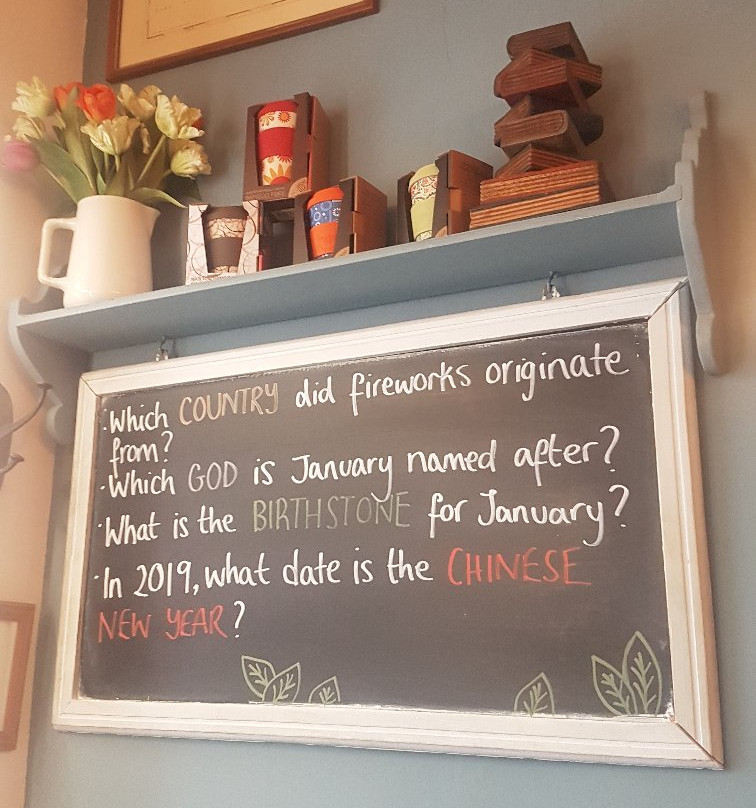 ·Which COUNTRY did fireworks originate
from?
·Which GOD is January named after?
·What is the BIRTHSTONE for January?
·In 2019, what date is the CHINESE
NEW YEAR?